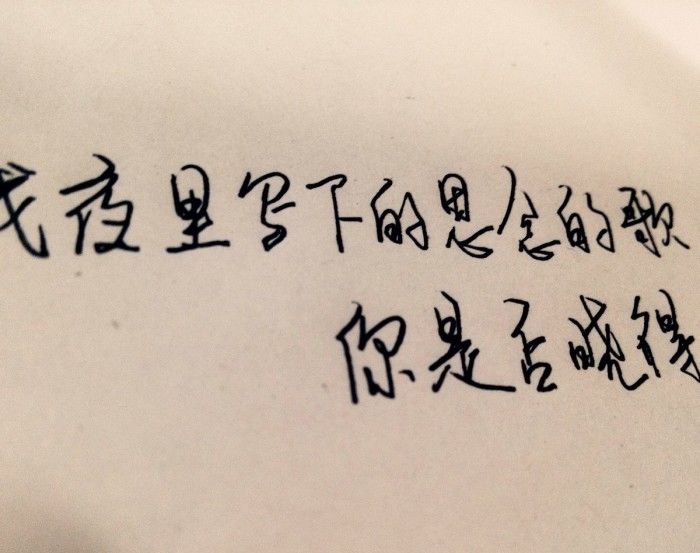 我夜里写下的思念的歌
你是否晓得